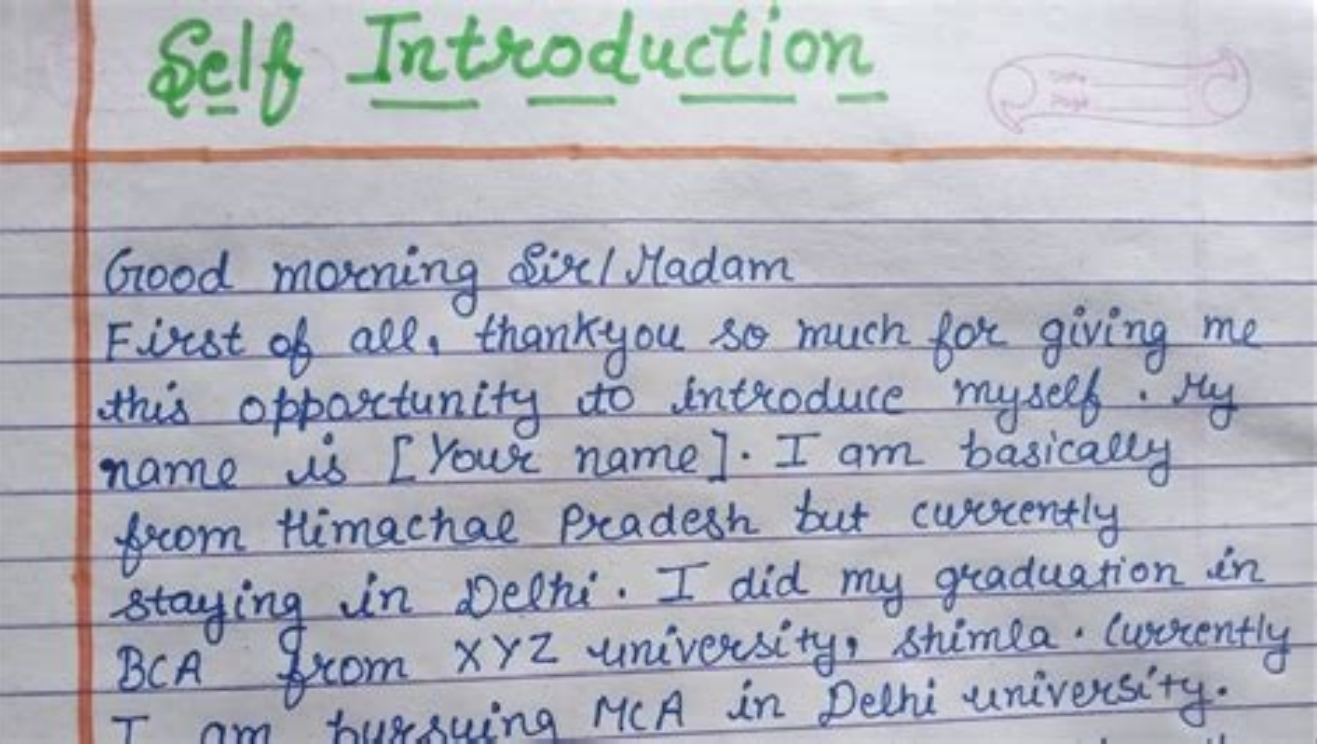 Self Introduction
Good morning Sir/Madam
First of all, thankyou so much for giving me
this opportunity to introduce myself. My
name is [Your name]. I am basically
from Himachal Pradesh but currently
staying in Delhi. I did my graduation in
BCA from XYZ university, shimla. Currently
I am pursuing MCA in Delhi university.